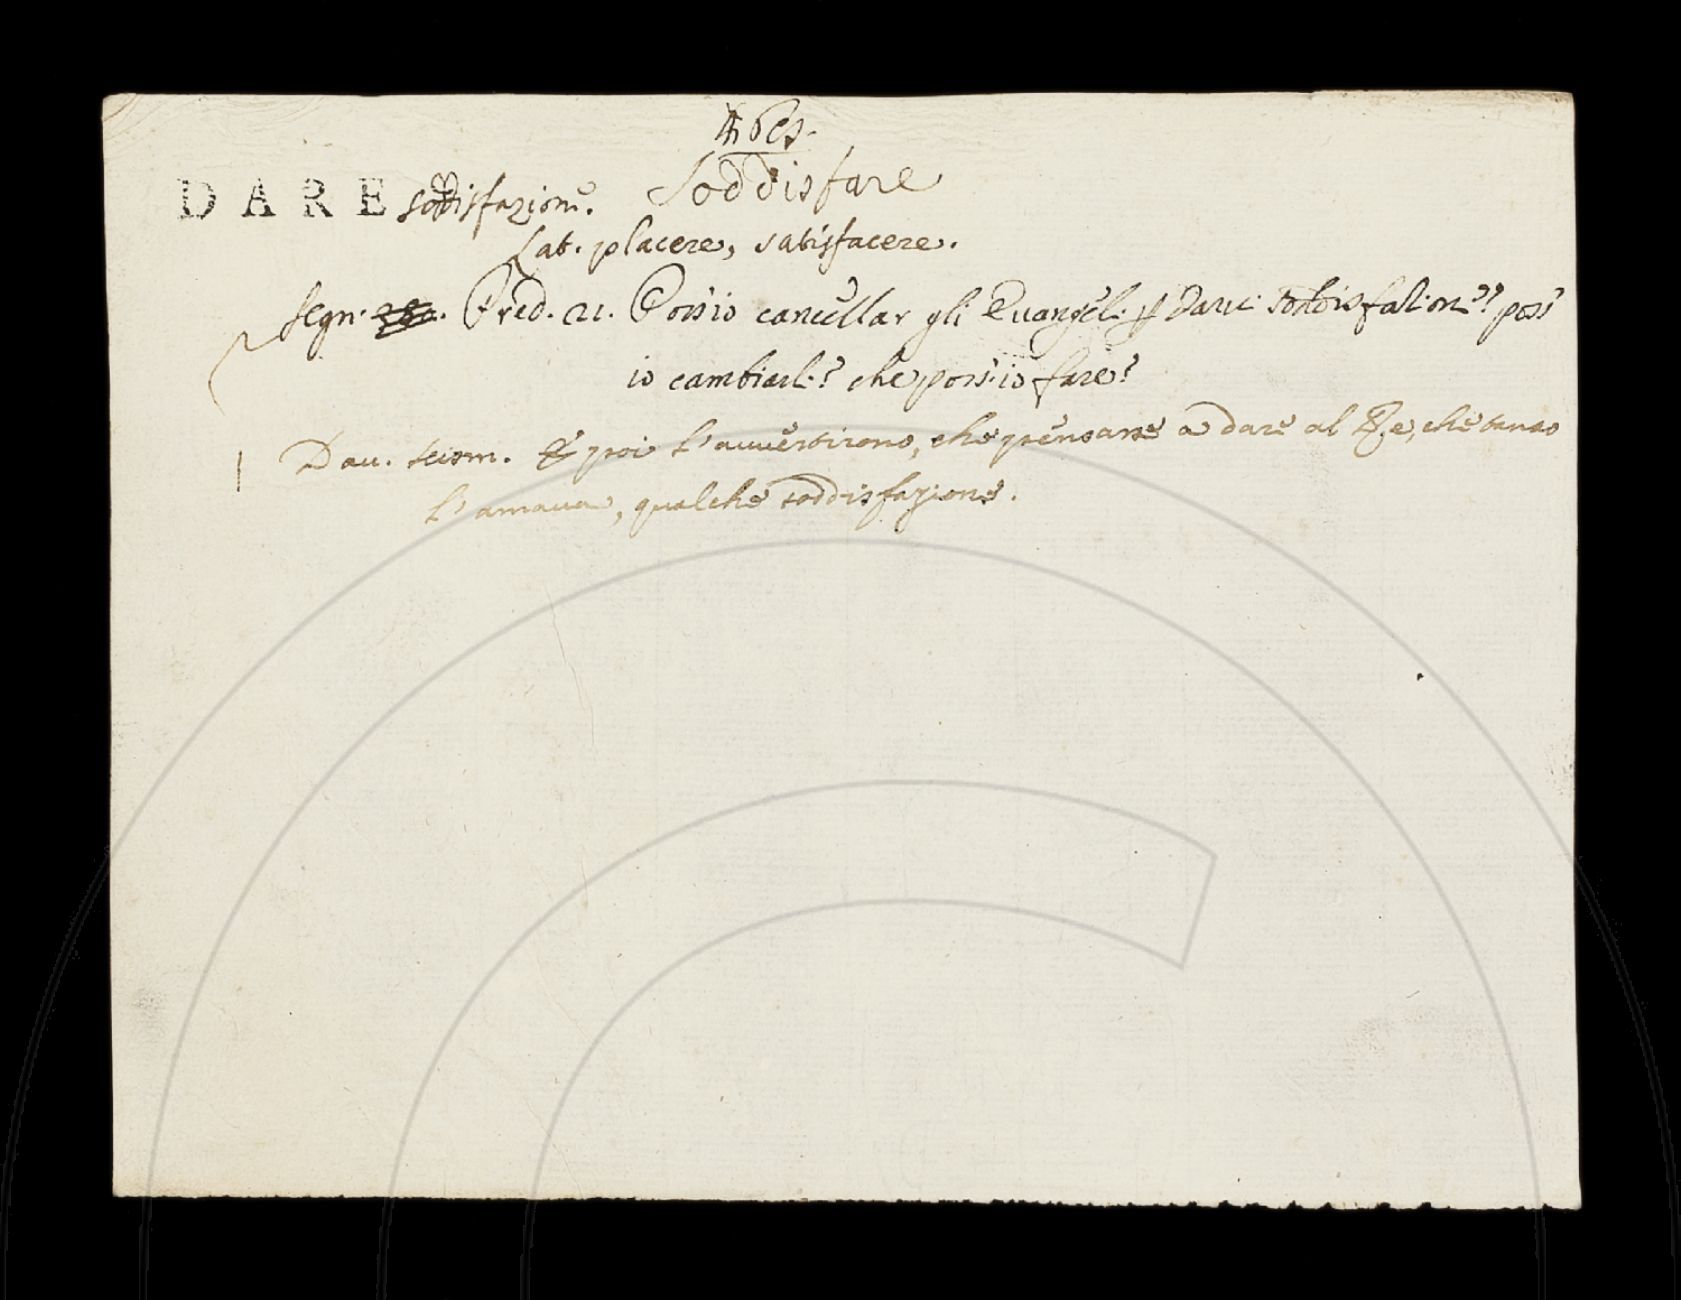 DARE soddisfazione. Soddisfare
Lat. placere, satisfacere.
Segn. Pred. 21. Poss'io cancellar gli Evangel. p darvi soddisfation? poss'
io cambiarl.? che poss'io fare?
Dav. scism. E poi l'avvertirono, che pensasse a dare al Re, che tanto
l'amava, qualche soddisfazione.